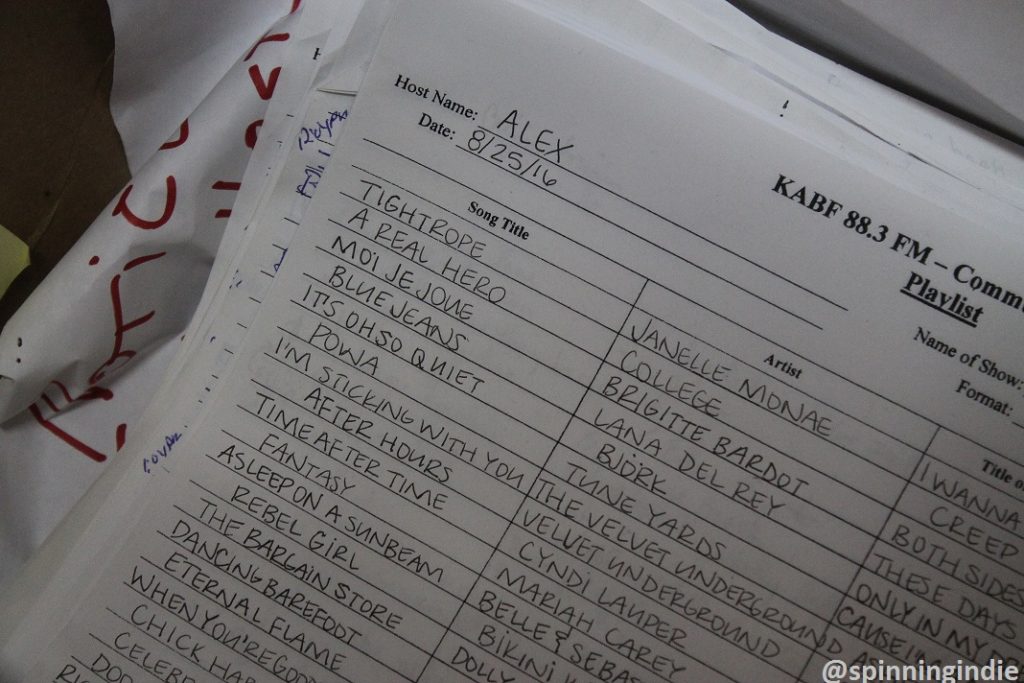 Host Name: ALEX
Date: 8/25/16
KABF 88.3 FM – Comm
Playlist
Name of Show:
Format:
Song Title Artist Title o
TIGHTROPE JANELLE MONAE I WANNA
A REAL HERO COLLEGE CREEP
MOI JE JOUE BRIGITTE BARDOT BOTH SIDES
BLUE JEANS LANA DEL REY THESE DAYS
IT'S OH SO QUIET BJÖRK ONLY IN MY
POWA TUNE YARDS CAUSE IN
I'M STICKING WITH YOU THE VELVET UNDERGROUND
AFTER HOURS VELVET UNDERGROUND
TIME AFTER TIME CYNDI LAUPER
FANTASY MARIAH CAREY
ASLEEP ON A SUNBEAM BELLE & SEBAS
REBEL GIRL BIKINI
THE BARGAIN STORE DOLLY
DANCING BAREFOOT
ETERNAL FLAME
WHEN YOU'RE GOOD
CHICK HA
CELEB
DOO
@spinningindie